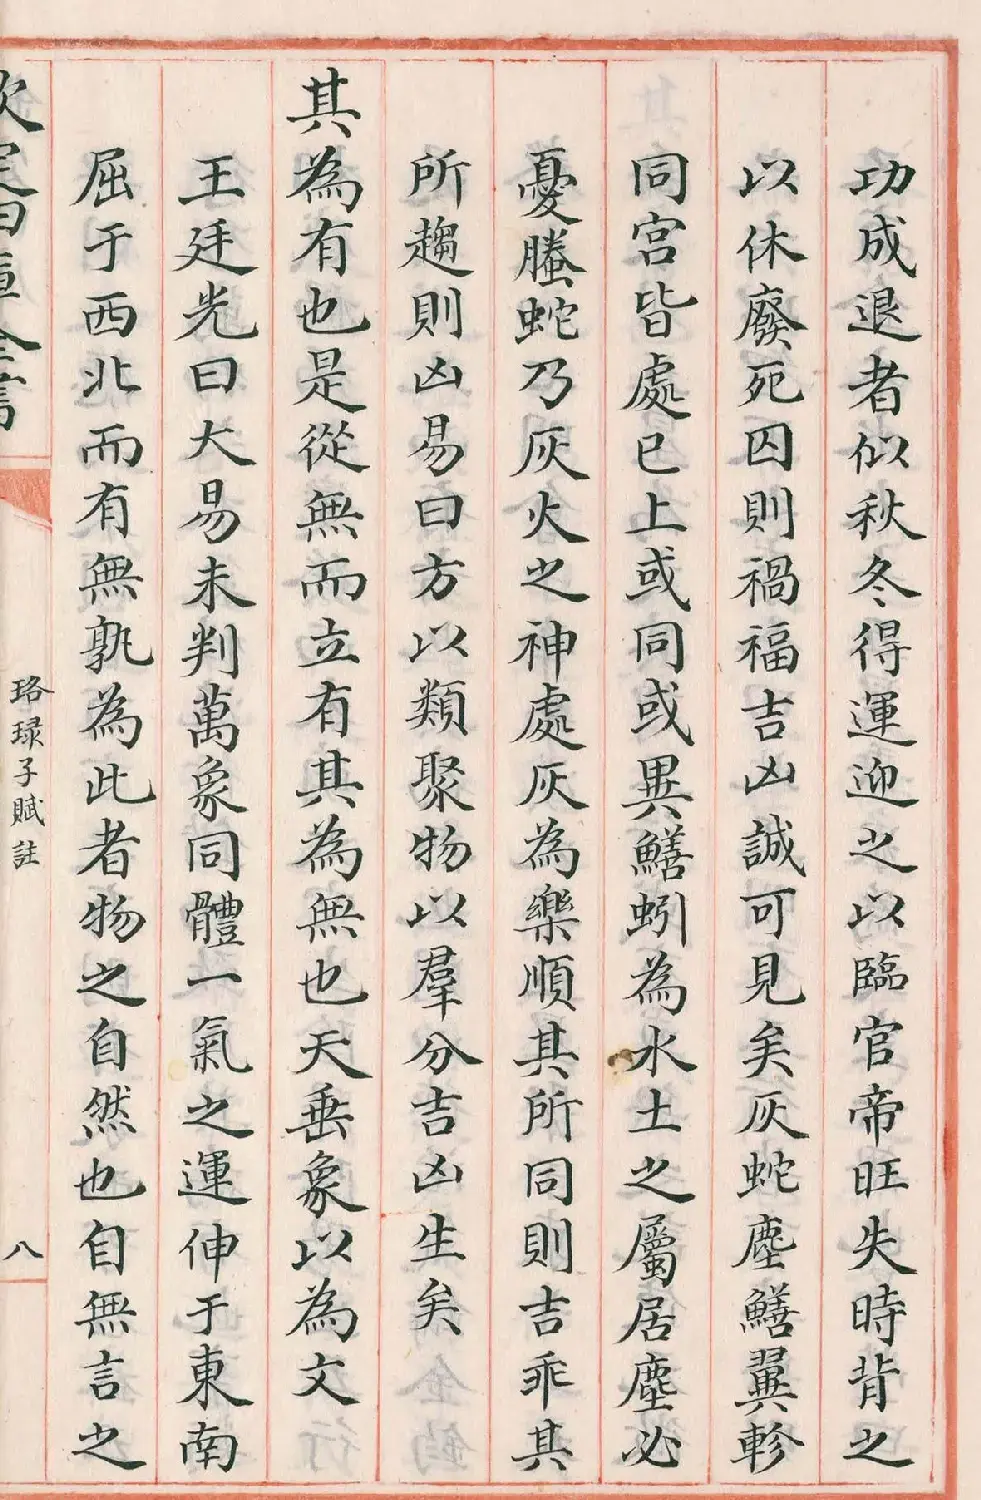 功成退者似秋冬得運迎之以臨官帝旺失時背之
以休廢死囚則禍福吉凶誠可見矣灰蛇塵鱔翼軫
同宮皆處已上或同或異鱔蚓為水土之屬居塵必
憂螣蛇乃灰火之神處灰為樂順其所同則吉乖其
所趨則凶易曰方以類聚物以羣分吉凶生矣
其為有也是從無而立有其為無也天垂象以為文
王廷光曰大易未判萬象同體一氣之運伸于東南
屈于西北而有無孰為此者物之自然也自無言之
欽定四庫全書
珞琭子賦註
八